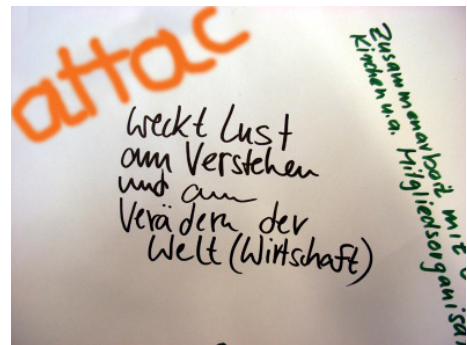 attac
weckt Lust
am Verstehen
und am
Verädern der
Welt (Wirtschaft)
Zusammenarbeit mit
Kirchen u.a. Mitgliedsorganisa